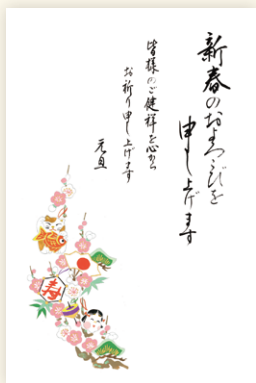 新春のおよろこびを
申し上げます
皆様のご健祥を心から
お祈り申し上げます
元旦
寿